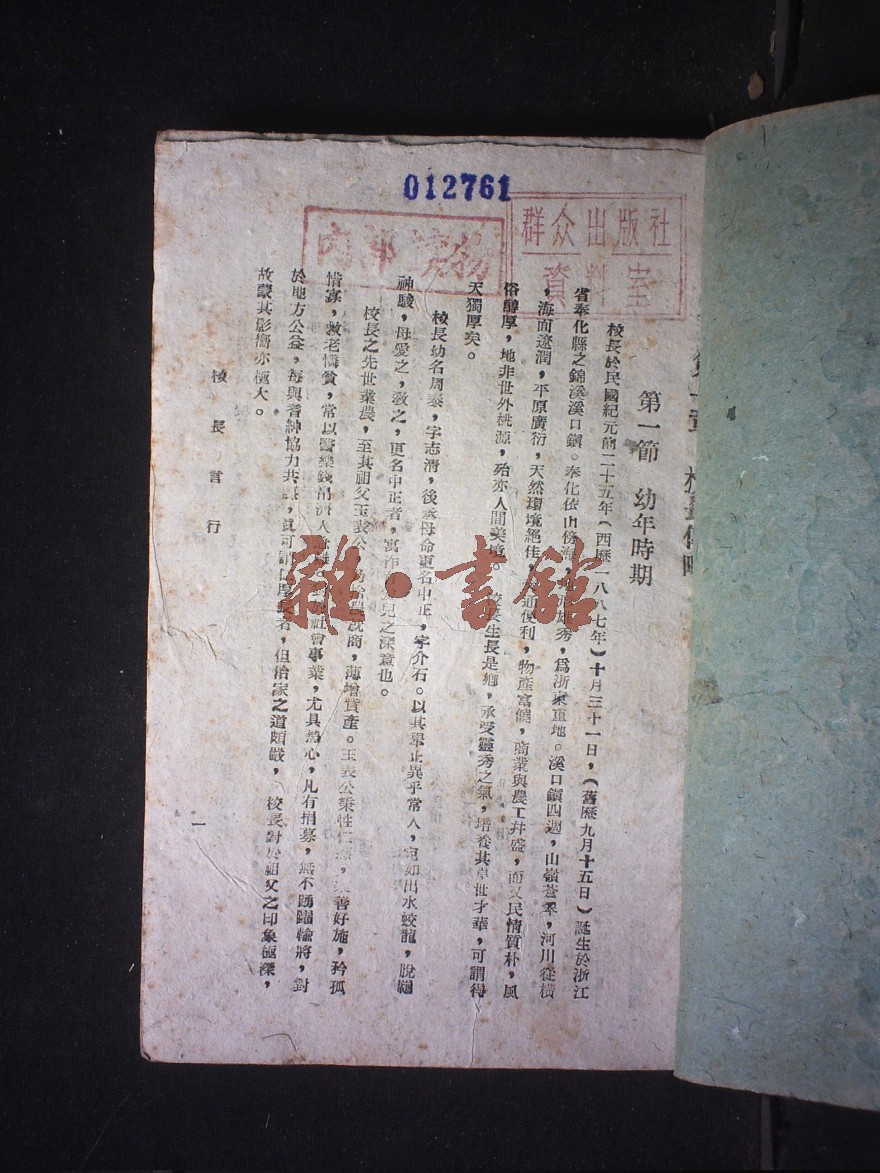 012761
群众出版社
資料室
内部
雜·書館
第一章 校
第一節 幼年時期
校長於民國紀元前二十五年(西歷一八八七年)十月三十一日,(舊歷九月十五日)誕生於浙江
省奉化縣之錦溪溪口鎮。奉化依山傍海,秀,為浙東重地。溪口鎮四週,山嶺蒼翠,河川從橫
,海面遼濶,平原廣衍,天然環境絕佳,交通便利,物產富饒,商業與農工并盛,而又民情質朴,風
俗醇厚,地非世外桃源,殆亦人間美境。 校長生長是鄉,承受靈秀之氣,培養其卓世才華,可謂得
天獨厚矣。
校長幼名周泰,字志清,後奉母命更名中正,字介石。以其舉止異乎常人,宛如出水蛟龍,脫韁
神駿,母愛之,教之,更名中正者,寓作兒之深意也。
校長之先世業農,至其祖父玉表公,農就商,薄增貲產。玉表公秉性仁慈,善好施,矜孤
惜寡,救老憐貧,常以醫藥錢帛濟人社會事業,尤具熱心,凡有捐募,無不踴躍輸將,對
於地方公益,每與耆紳協力共,真可謂仁厚長者,但治家之道頗嚴, 校長對於祖父之印象極深,
故蒙其影嚮亦極大。
校長言行
一